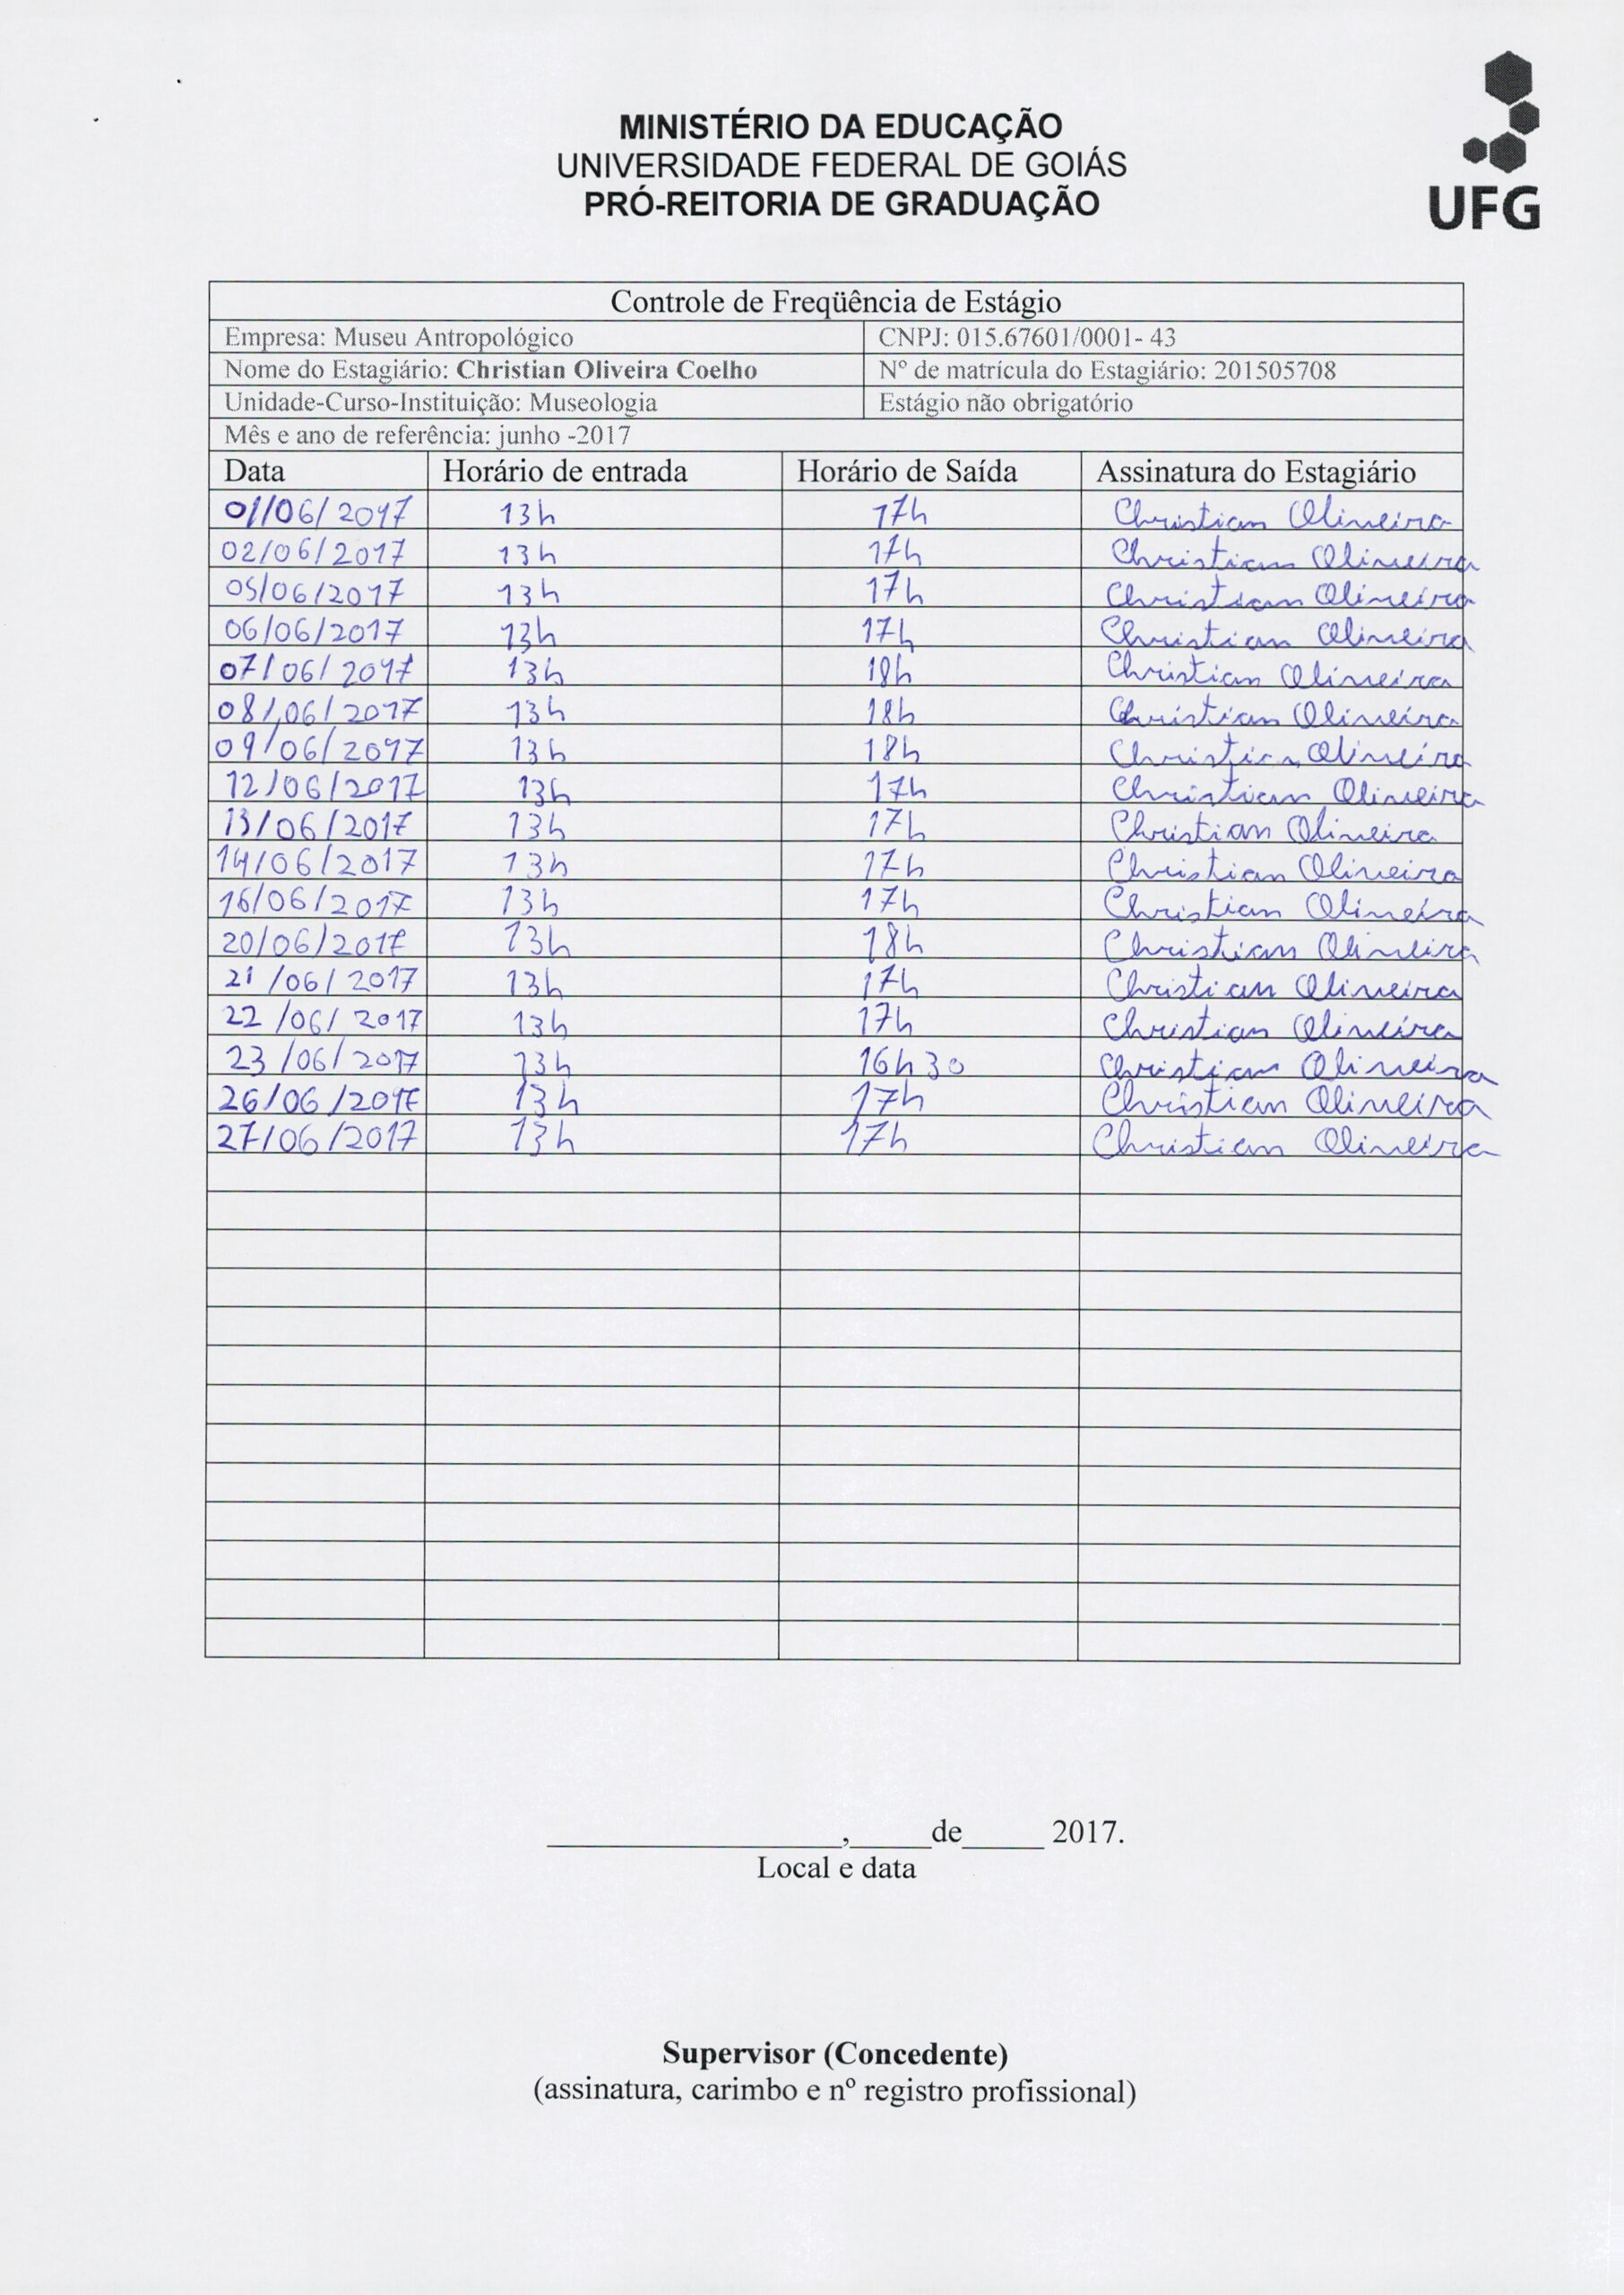 MINISTÉRIO DA EDUCAÇÃO
UNIVERSIDADE FEDERAL DE GOIÁS
PRÓ-REITORIA DE GRADUAÇÃO
UFG
Controle de Freqüência de Estágio
Empresa: Museu Antropológico CNPJ: 015.67601/0001- 43
Nome do Estagiário: Christian Oliveira Coelho Nº de matrícula do Estagiário: 201505708
Unidade-Curso-Instituição: Museologia Estágio não obrigatório
Mês e ano de referência: junho -2017
Data Horário de entrada Horário de Saída Assinatura do Estagiário
01/06/2017 13h 17h Christian Oliveira
02/06/2017 13h 17h Christian Oliveira
05/06/2017 13h 17h Christian Oliveira
06/06/2017 13h 17h Christian Oliveira
07/06/2017 13h 18h Christian Oliveira
08/06/2017 13h 18h Christian Oliveira
09/06/2017 13h 18h Christian Oliveira
12/06/2017 13h 17h Christian Oliveira
13/06/2017 13h 17h Christian Oliveira
14/06/2017 13h 17h Christian Oliveira
16/06/2017 13h 17h Christian Oliveira
20/06/2017 13h 18h Christian Oliveira
21/06/2017 13h 17h Christian Oliveira
22/06/2017 13h 17h Christian Oliveira
23/06/2017 13h 16h30 Christian Oliveira
26/06/2017 13h 17h Christian Oliveira
27/06/2017 13h 17h Christian Oliveira
__________________,_____de_____ 2017.
Local e data
Supervisor (Concedente)
(assinatura, carimbo e nº registro profissional)